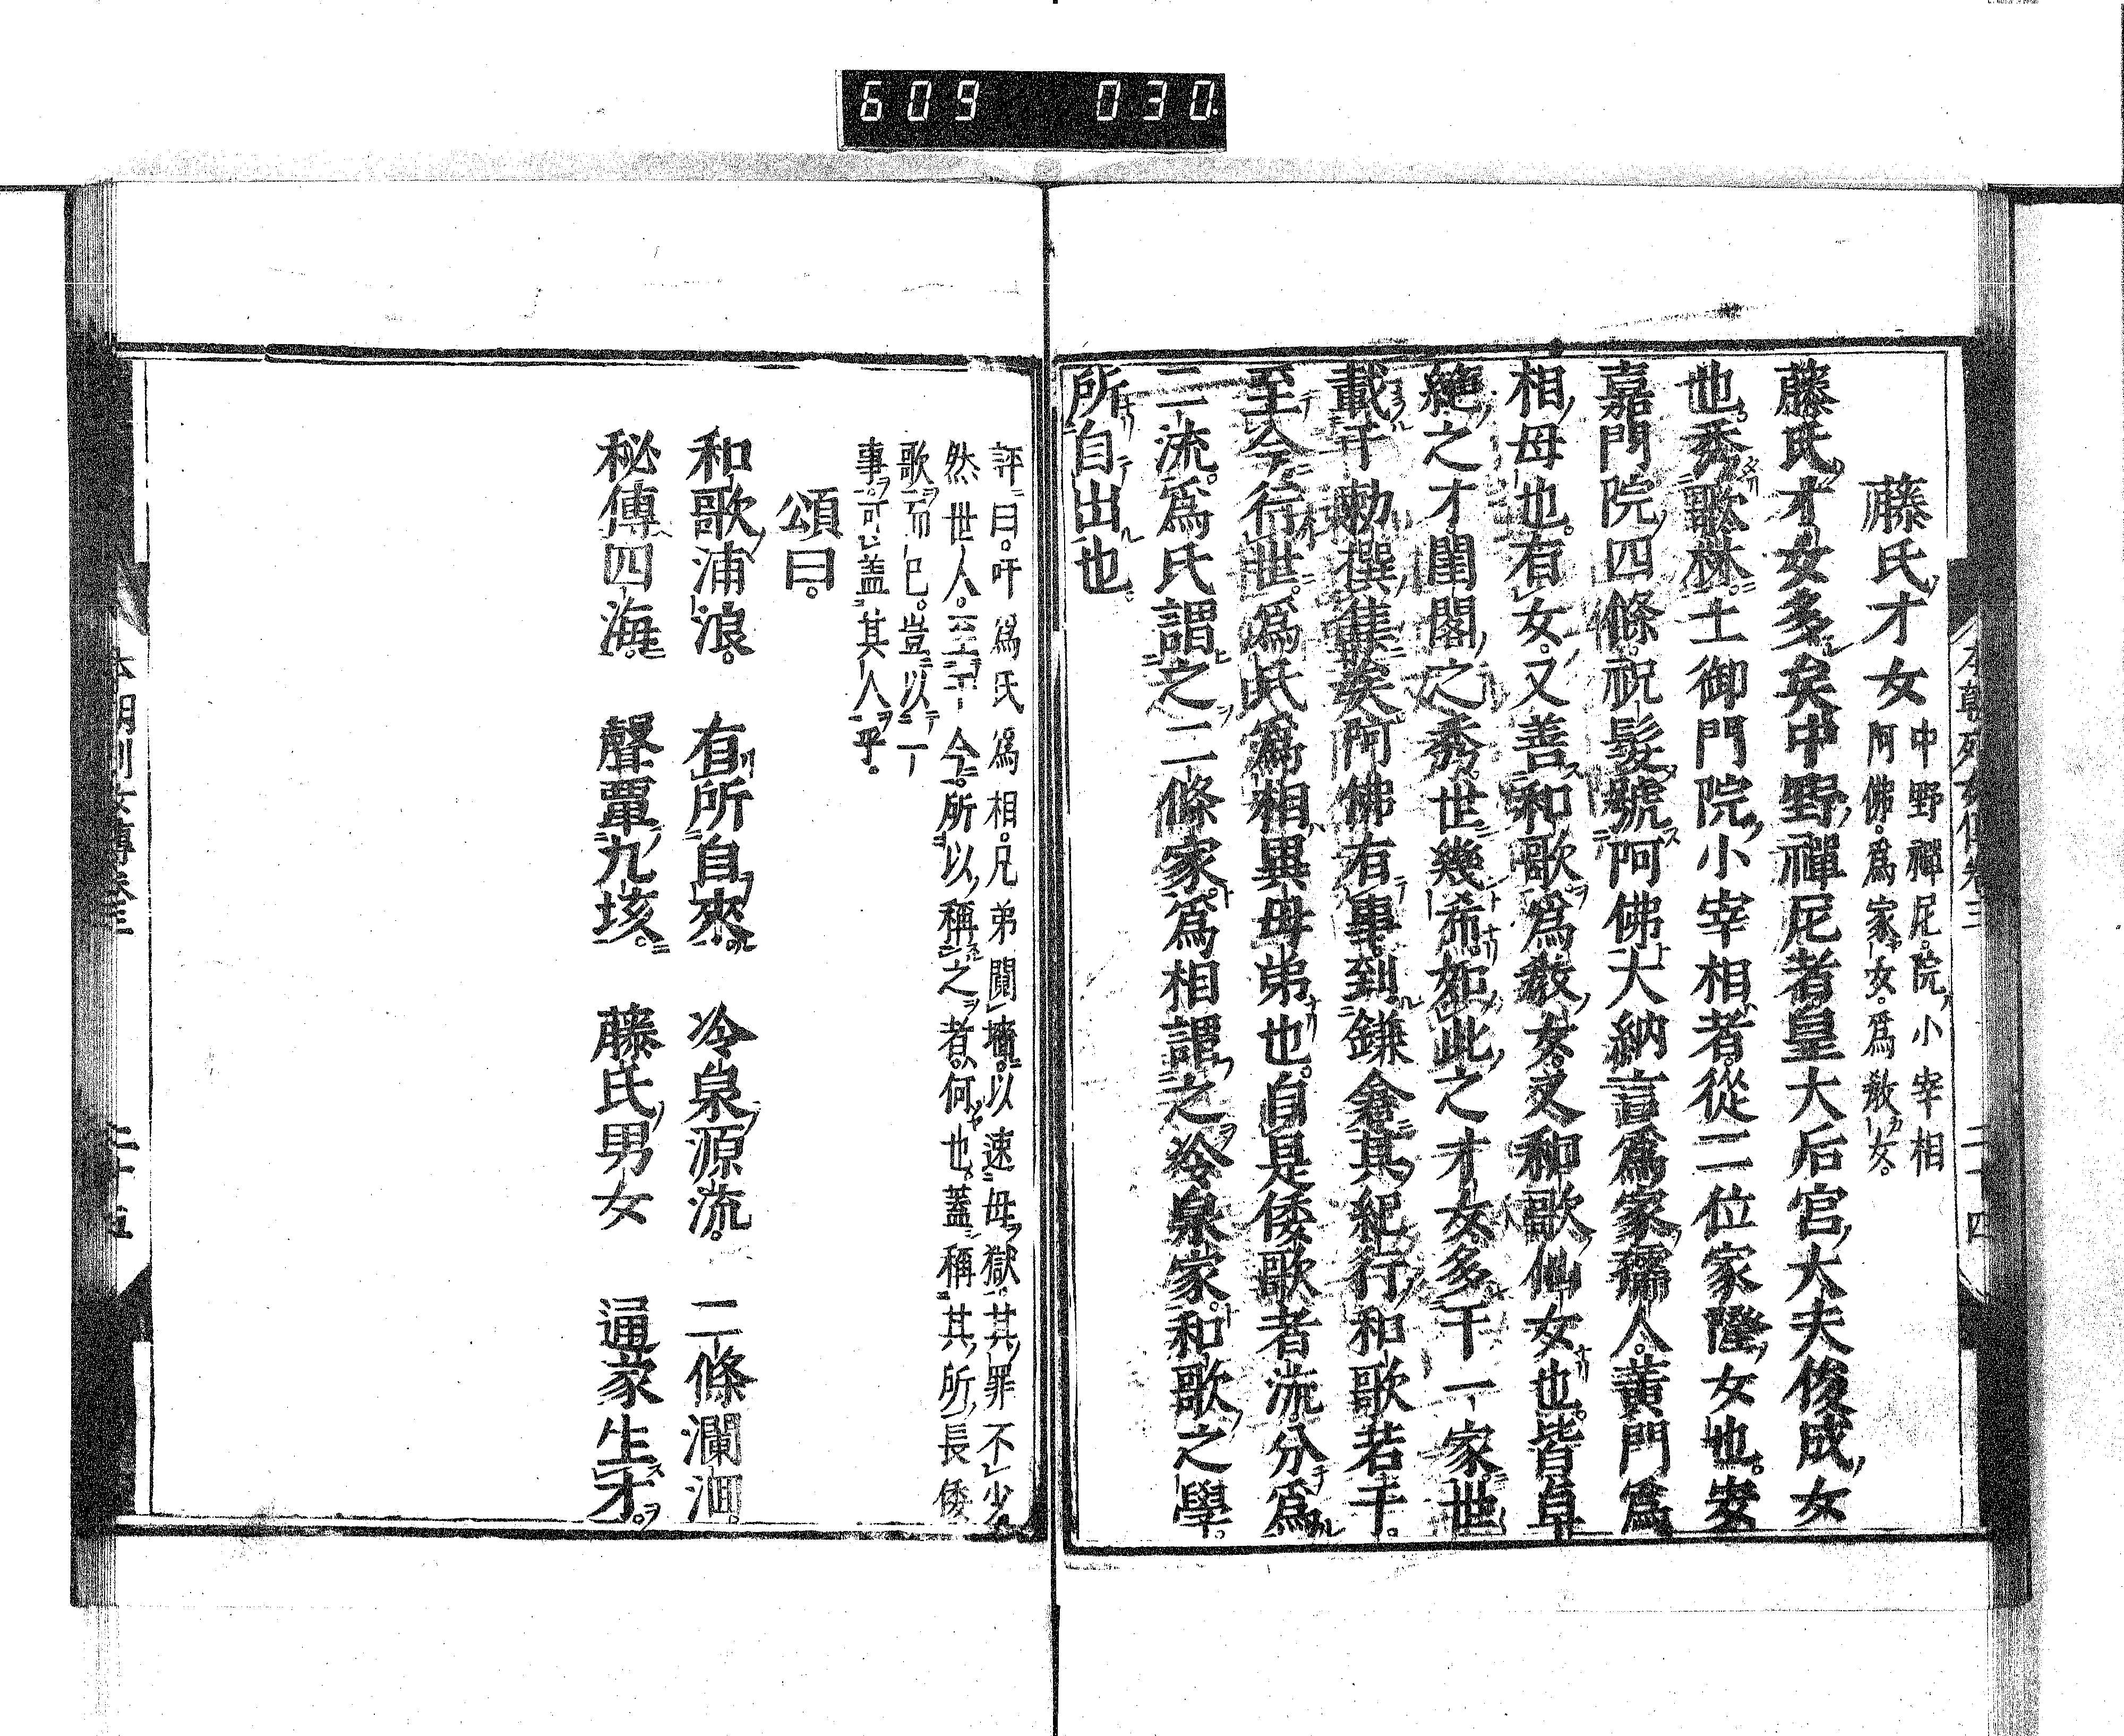 609 030
本朝列女傳卷三 二十四
藤氏才女 中野禪尼。院小宰相
阿佛。爲家女。爲敎女。
藤氏才女多矣中野禪尼者皇大后宮大夫俊成女
也。秀歌林。土御門院小宰相者。從二位家隆女也。安
嘉門院四條。祝髮號阿佛大納言爲家孺人。黃門爲
相母也。有女。又善和歌爲敎女。又和歌仙女也。皆卓
絶之才閨閣之秀。世幾希。如此之才女多于一家。世
載于勅撰集矣阿佛有事。到鎌倉其紀行和歌若干。
至今行世。爲氏爲相異母弟也。自是倭歌者流分爲
二流。爲氏謂之二條家。爲相謂之冷泉家。和歌之學。
所自出也。
評曰。吁爲氏爲相。兄弟鬩墻。以速母獄。其罪不少。
然世人。至于今。所以稱之者。何也。蓋稱其所長倭
歌而已。豈以一
事。可蓋其人乎。
頌曰。
和歌浦浪。 有所自來。 冷泉源流。 二條瀾洄。
秘傳四海。 聲覃九垓。 藤氏男女 通家生才。
本朝列女傳卷三 二十五